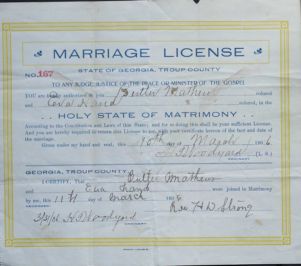 MARRIAGE LICENSE
No. 167
STATE OF GEORGIA, TROUP COUNTY
TO ANY JUDGE, JUSTICE OF THE PEACE OR MINISTER OF THE GOSPEL
YOU are hereby authorized to join Butler Mathews colored
and Eva Hand colored, in the
HOLY STATE OF MATRIMONY
According to the Constitution and Laws of this State; and for so doing this shall be your sufficient License.
And you are hereby required to return this License to me, with your certificate hereon of the fact and date of
the marriage.
Given under my hand and seal, this 10th day of March 6
H T Woodyard (L. S.)
GEORGIA, TROUP COUNTY
I CERTIFY, That Butler Mathews
and Eva Hand were joined in Matrimony
by me, this 11th day of March
Rev H D Strong
H T Woodyard